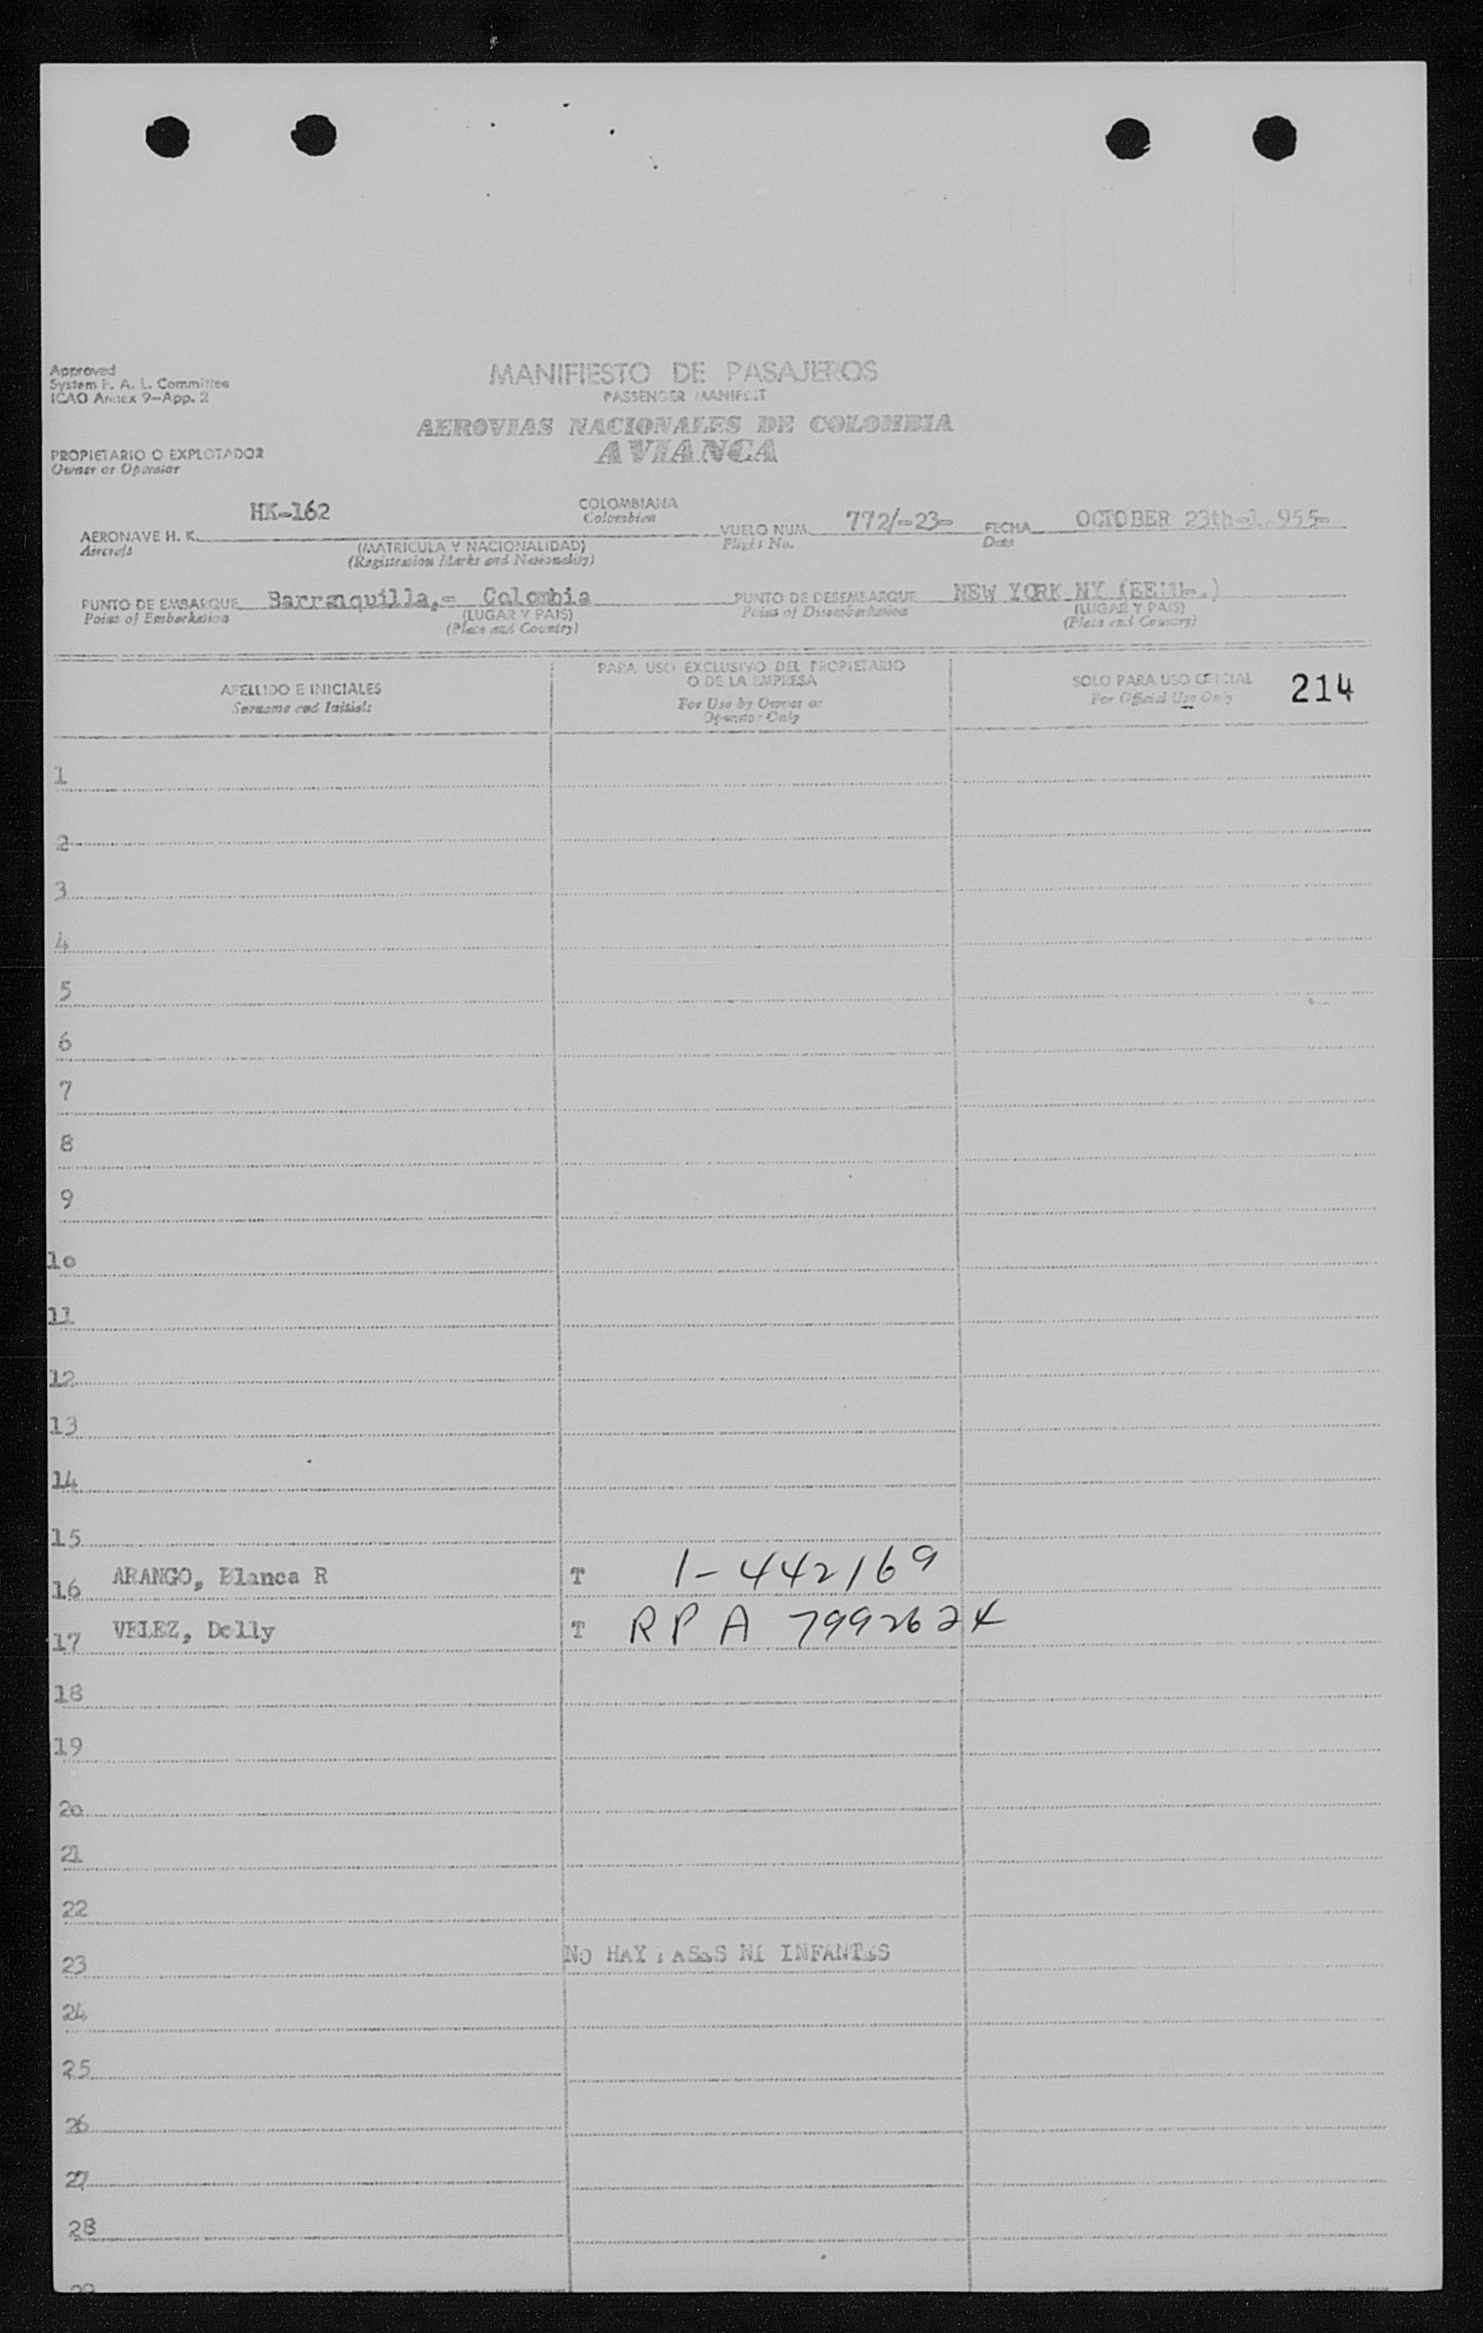 Approved
System F. A. L. Committee
ICAO Annex 9-App. 2
MANIFIESTO DE PASAJEROS
PASSENGER MANIFEST
AEROVIAS NACIONALES DE COLOMBIA
AVIANCA
PROPIETARIO O EXPLOTADOR
Owner or Operator
AERONAVE H. K. HK-162 COLOMBIANA VUELO NUM. 772/-23- FECHA OCTOBER 23th-1.955-
Aircraft Colombian Flight No. Date
(MATRICULA Y NACIONALIDAD)
(Registration Marks and Nationality)
PUNTO DE EMBARQUE Barranquilla,- Colombia PUNTO DE DESEMBARQUE NEW YORK NY
Point of Embarkation (LUGAR Y PAIS) Point of Disembarkation (LUGAR Y PAIS)
(Place and Country) (Place and Country)
APELLIDO E INICIALES
Surname and Initials
PARA USO EXCLUSIVO DEL PROPIETARIO
O DE LA EMPRESA
For Use by Owner or
Operator Only
SOLO PARA USO OFICIAL 214
For Official Use Only
1
2
3
4
5
6
7
8
9
10
11
12
13
14
15
16 ARANGO, Blanca R T 1-442169
17 VELEZ, Dolly T RPA 7992624
18
19
20
21
22
23 NO HAY PASES NI INFANTES
24
25
26
27
28
29